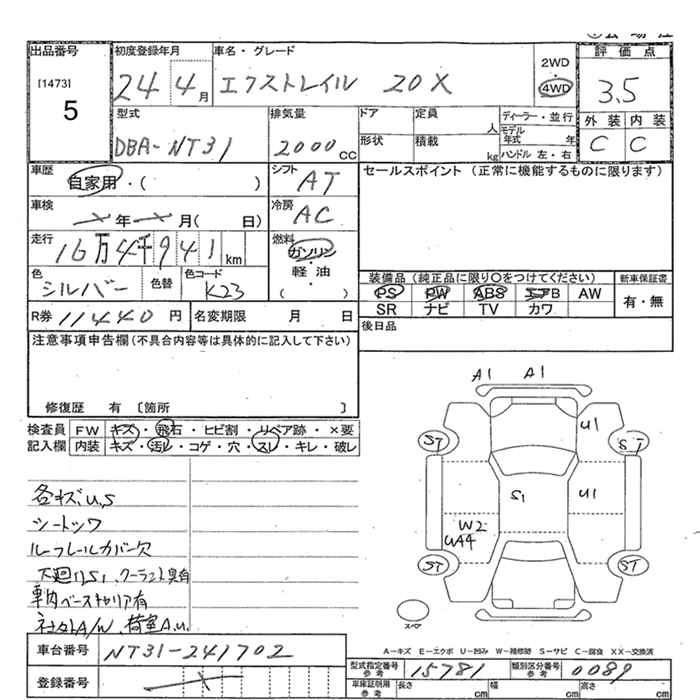 出品番号 初度登録年月 車名・グレード 2WD 評価点
[1473] 5 24 4月 エクストレイル 20X 4WD 3.5
型式 排気量 ドア 定員 人 ディーラー・並行 外装 内装
DBA-NT31 2000cc 形状 積載 kg モデル年式 年 ハンドル 左・右 C C
車歴 自家用・( ) シフト AT セールスポイント (正常に機能するものに限ります)
車検 年 月( 日) 冷房 AC
走行 16万4千941km 燃料 ガソリン・軽油・( )
色 シルバー 色替 色コード K23 装備品 (純正品に限り○をつけてください) 新車保証書
PS PW ABS エアB AW 有・無
R券 11440円 名変期限 月 日 SR ナビ TV カワ
注意事項申告欄 (不具合内容等は具体的に記入して下さい) 後日品
修復歴 有 [箇所 ]
検査員 FW キズ・飛石・ヒビ割・リペア跡・×要
記入欄 内装 キズ・汚レ・コゲ・穴・スレ・キレ・破レ
A1 A1
U1
ST ST
S1 U1
W2
UA4
ST ST
スペア
各キズ、U,S
シートツワ
ルーフレールカバー欠
下廻りS1、クーラント臭有
車内ペーストクリア有
ネジ穴A/W、荷室A.U.
A-キズ E-エクボ U-凹み W-補修跡 S-サビ C-腐食 XX-交換済
車台番号 NT31-241702
型式指定番号 参考 15781 類別区分番号 参考 0089
登録番号
車庫証明用 参考 長さ cm 幅 cm 高さ cm